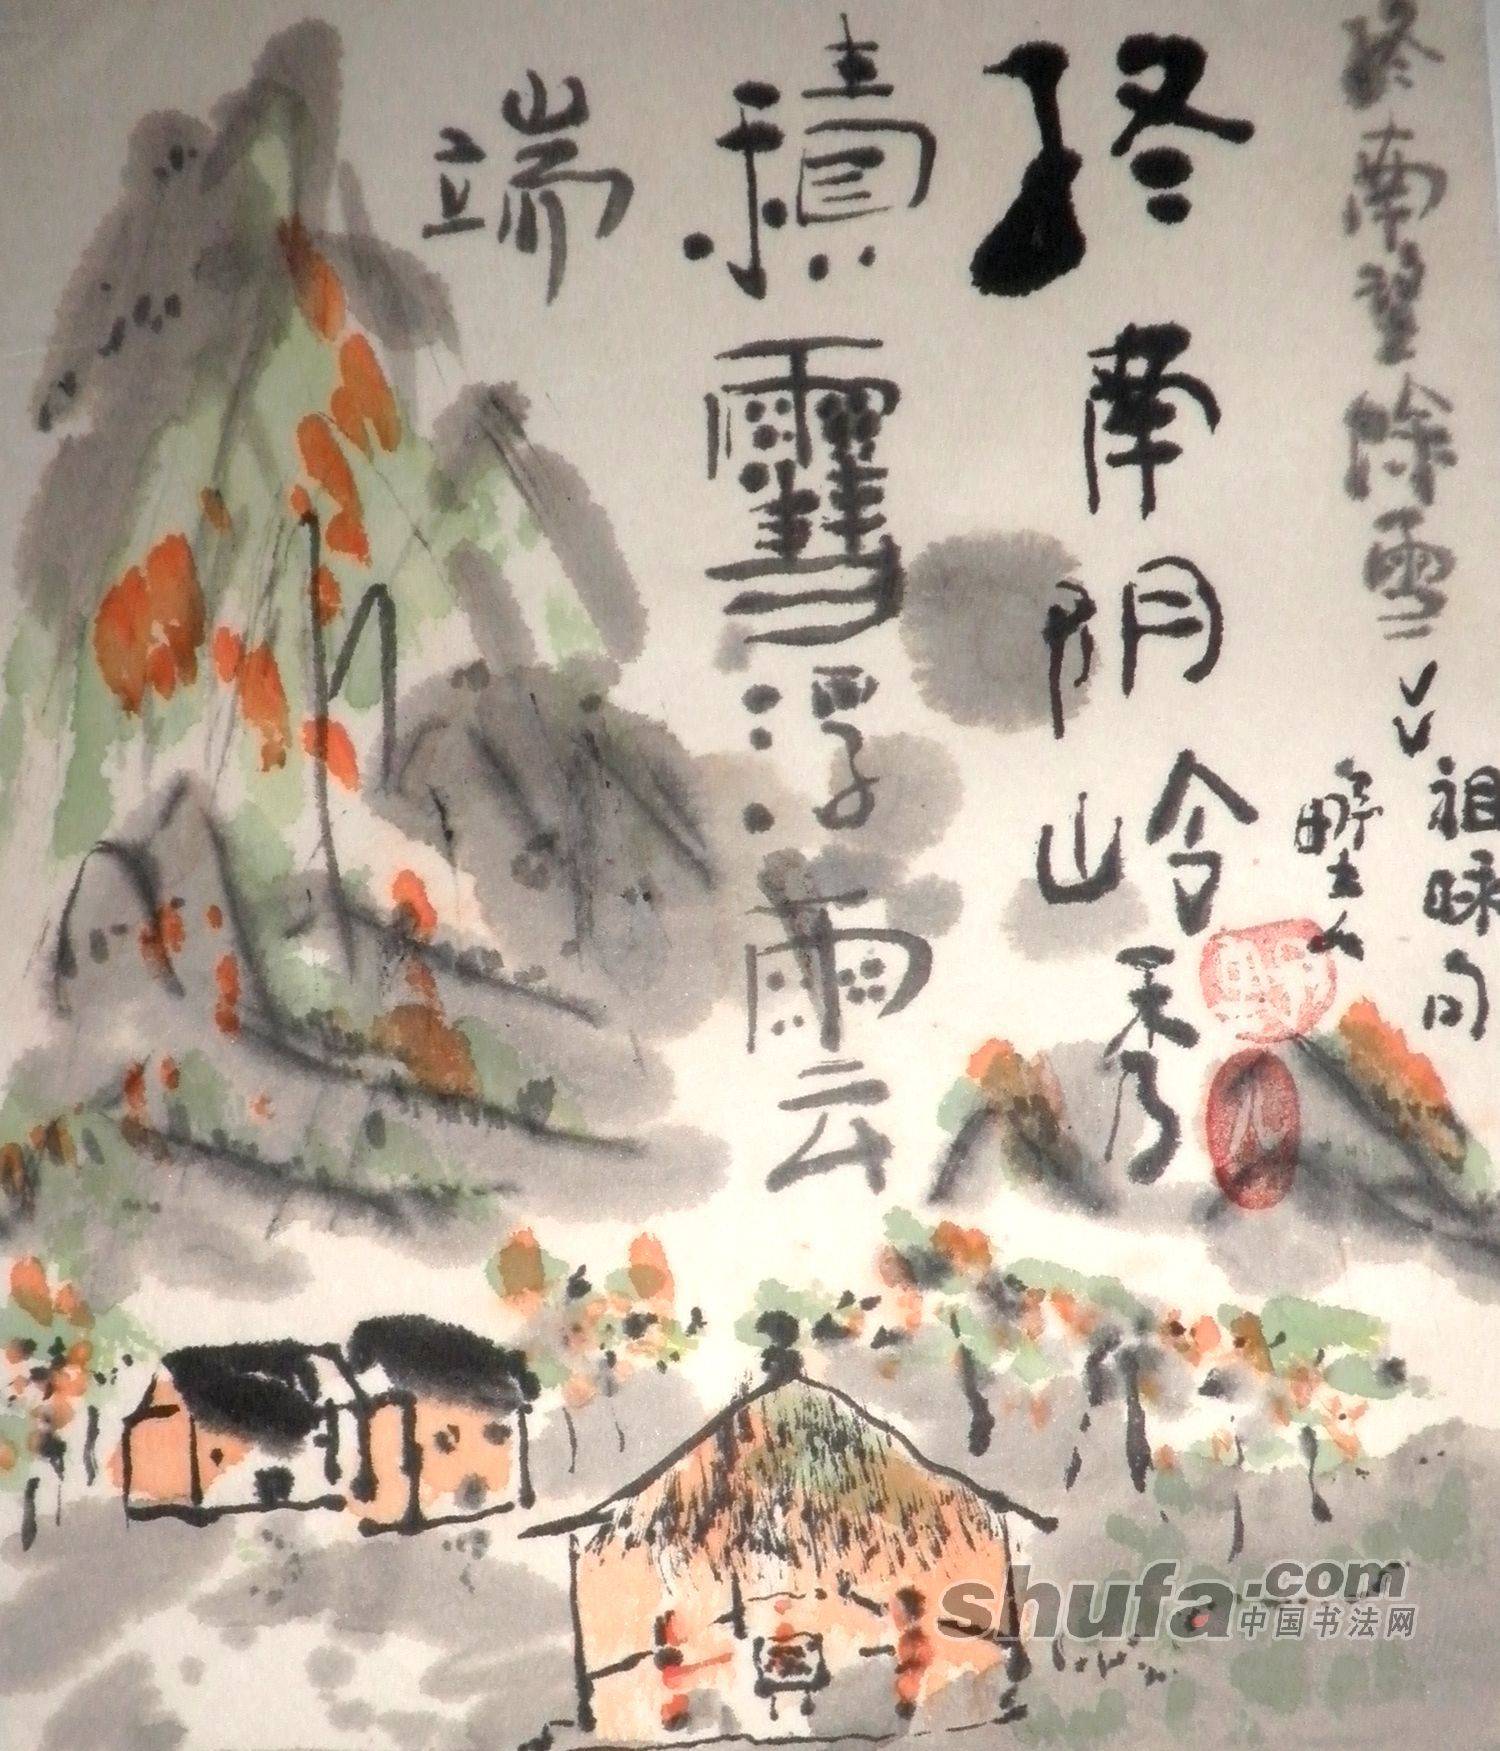 终南望除雪
祖咏句
终南阴岭秀
積雪浮雲
端
shufa.com
中国书法网